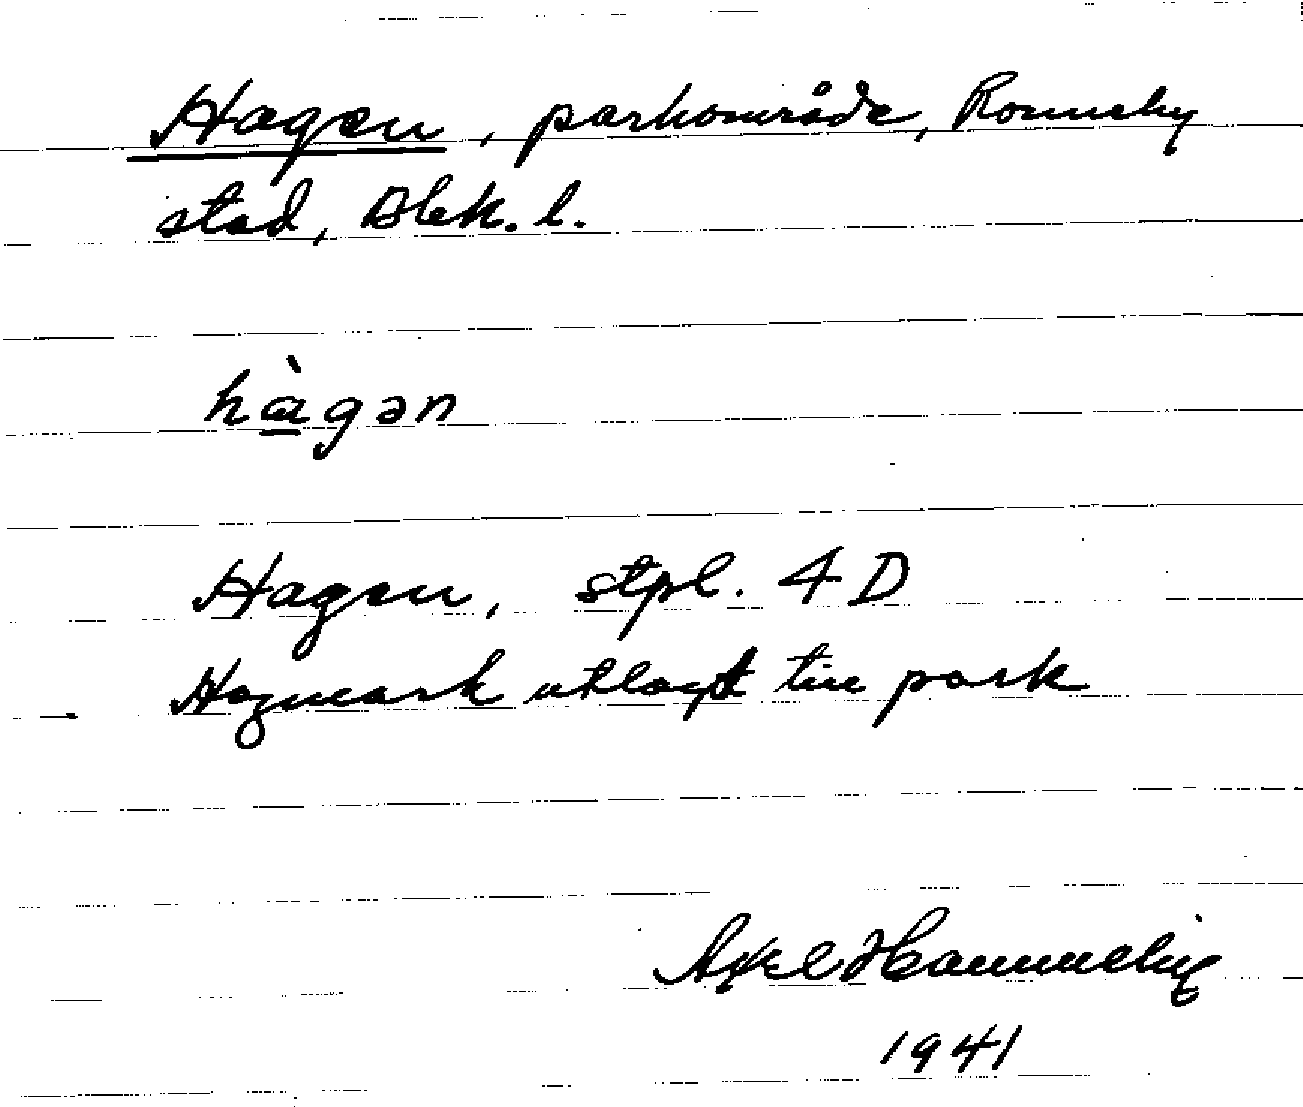 Hagen, parkområde, Ronneby
stad, Blek. l.
hàgən
Hagen, stpl. 4 D
Hagmark utlagt till park
Axel
1941